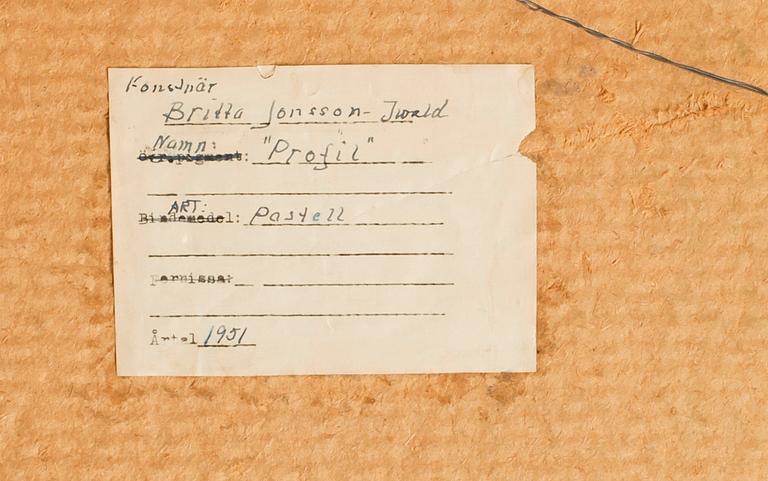 Konstnär
Britta Jonsson-Iwald
Namn:
"Profil"
ART:
Bindemedel: Pastell
Fernissa:
Årtal 1951